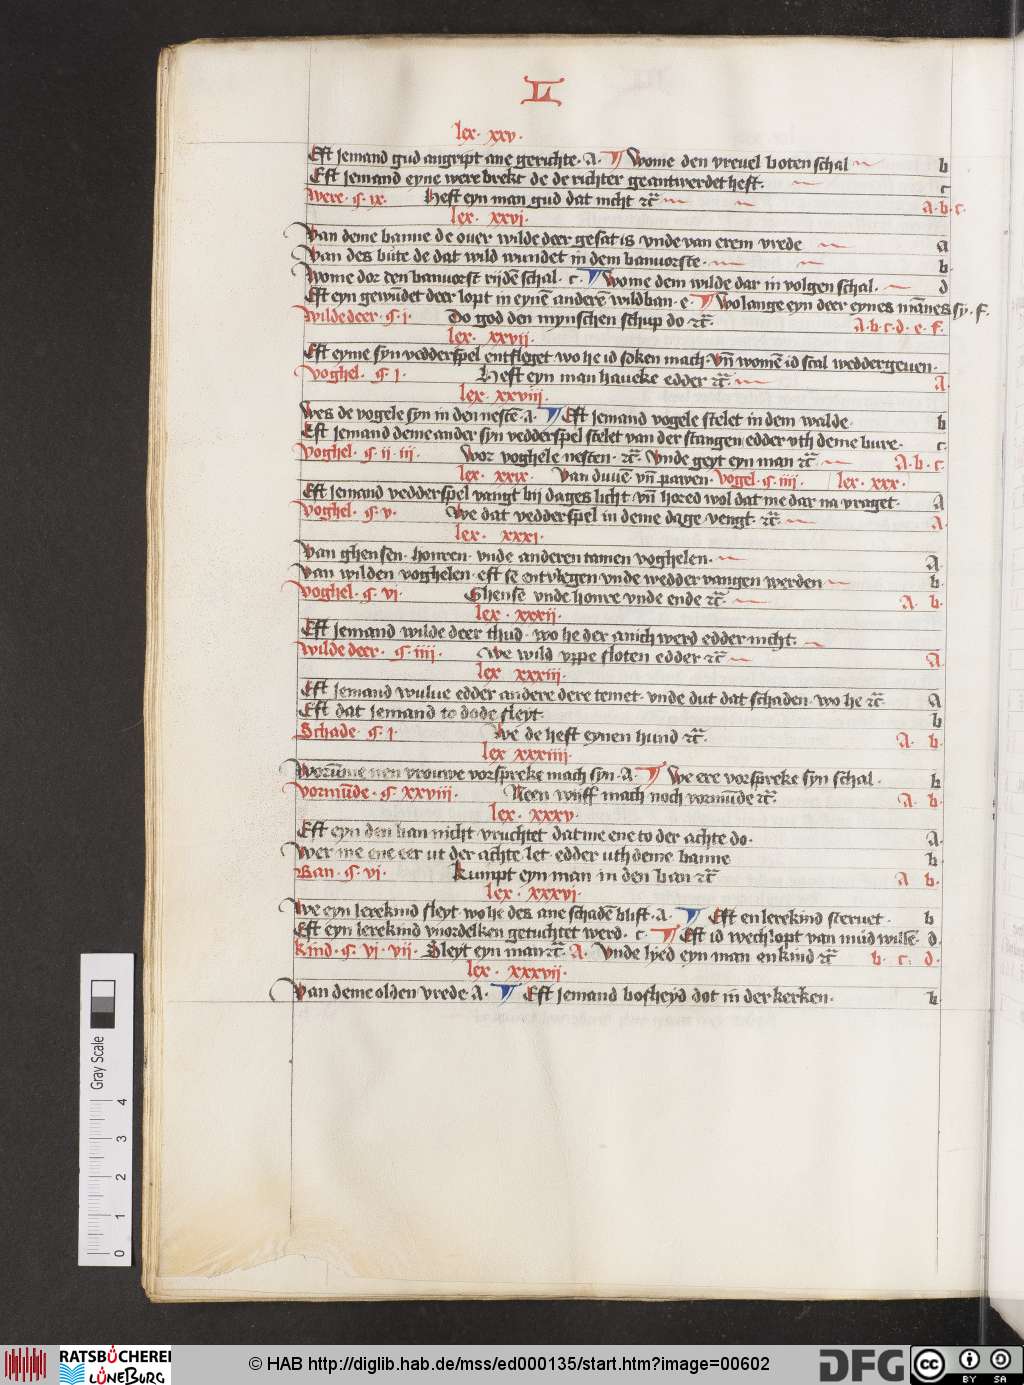 L
lex · xxv ·
Est jemand gud angript ane gerichte · A · ¶ Wome den vreuel boten schal b
Est jemand eyne were brekt de de richter geantwerdet heft · c
Were · ꝯ · ix · Heft eyn man gud dat nicht ⁊c̄ a · b · c ·
lex · xxvi ·
Van deme banne de ouer wilde deer gesat is vnde van erem vrede a
Van des bůte de dat wild wundet in dem banuorste · b
Wome dor den banuorst rijdē schal · c · ¶ Wome dem wilde dar in volgen schal · d
Est eyn gewūdet deer lopt in eynē anderē wildban · e · ¶ Wo lange eyn deer eynes mānes sy · f ·
Wilde deer · ꝯ · i · Do god den mynschen schup do ⁊c̄ · a · b · c · d · e · f ·
lex · xxvii ·
Est eyme syn vedderspel entfleget wo he id soken mach · vn̄ womē id scal weddergeuen ·
Voghel · ꝯ · i · Heft eyn man haueke edder ⁊c̄ · a ·
lex · xxviii ·
Wes de vogele syn in den nestē · a · ¶ Est jemand vogele stelet in dem walde · b
Est jemand deme ander syn vedderspel stelet van der stangen edder vth deme bure · c ·
Voghel · ꝯ · ii · iii · Wor voghele nesten · ⁊c̄ · Vnde geyt eyn man ⁊c̄ a · b · c ·
lex · xxix · Van duuē vn̄ pawen · Vogel · ꝯ · iiii · lex · xxx ·
Est jemand vedderspel vangt bij dages licht vn̄ hored wol dat me dar na vraget · a
Voghel · ꝯ · v · We dat vedderspel in deme dage vengt · ⁊c̄ · a ·
lex · xxxi ·
Van ghensen · honren · vnde anderen tamen voghelen · a ·
Van wilden voghelen · est se entvlegen vnde wedder vangen werden b ·
Voghel · ꝯ · vi · Ghensē vnde honre vnde ende ⁊c̄ · a · b ·
lex · xxxii ·
Est jemand wilde deer thud · wo he der anich werd edder nicht ·
Wilde deer · ꝯ · iiii · We wild vppe sloten edder ⁊c̄ a
lex xxxiii ·
Est jemand wulue edder andere dere temet · vnde dut dat schaden · wo he ⁊c̄ a
Est dat jemand to dode sleyt · b
Schade · ꝯ · i · We de heft eynen hund ⁊c̄ · a · b ·
lex xxxiiii ·
Worūme nen vrouwe vorspreke mach syn · A · ¶ We ere vorspreke syn schal · b
Vormūde · ꝯ · xxviii · Neen wyff mach noch vormūde ⁊c̄ · a · b ·
lex · xxxv ·
Est eyn den ban nicht vruchtet dat me ene to der achte do · a ·
Wer me ene eer ut der achte let edder uth deme banne b ·
Ban · ꝯ · vi · Kumpt eyn man in den ban ⁊c̄ a b ·
lex · xxxvi ·
We eyn lerekind sleyt wo he des ane schadē blift · a · ¶ Est en lerekind steruet · b
Est eyn lerekind vnordelken getuchtet werd · c · ¶ Est id wechlopt van mūd willē · d ·
Kind · ꝯ · vi · vii · Sleyt eyn man ⁊c̄ · a · Vnde lyed eyn man en kind ⁊c̄ b · c · d ·
lex · xxxvii ·
Van deme olden vrede · A · ¶ Est jemand bosheyd dot in der kerken · b
Gray Scale
0 1 2 3 4
RATSBÜCHEREI LÜNEBURG
© HAB http://diglib.hab.de/mss/ed000135/start.htm?image=00602
DFG
cc BY SA